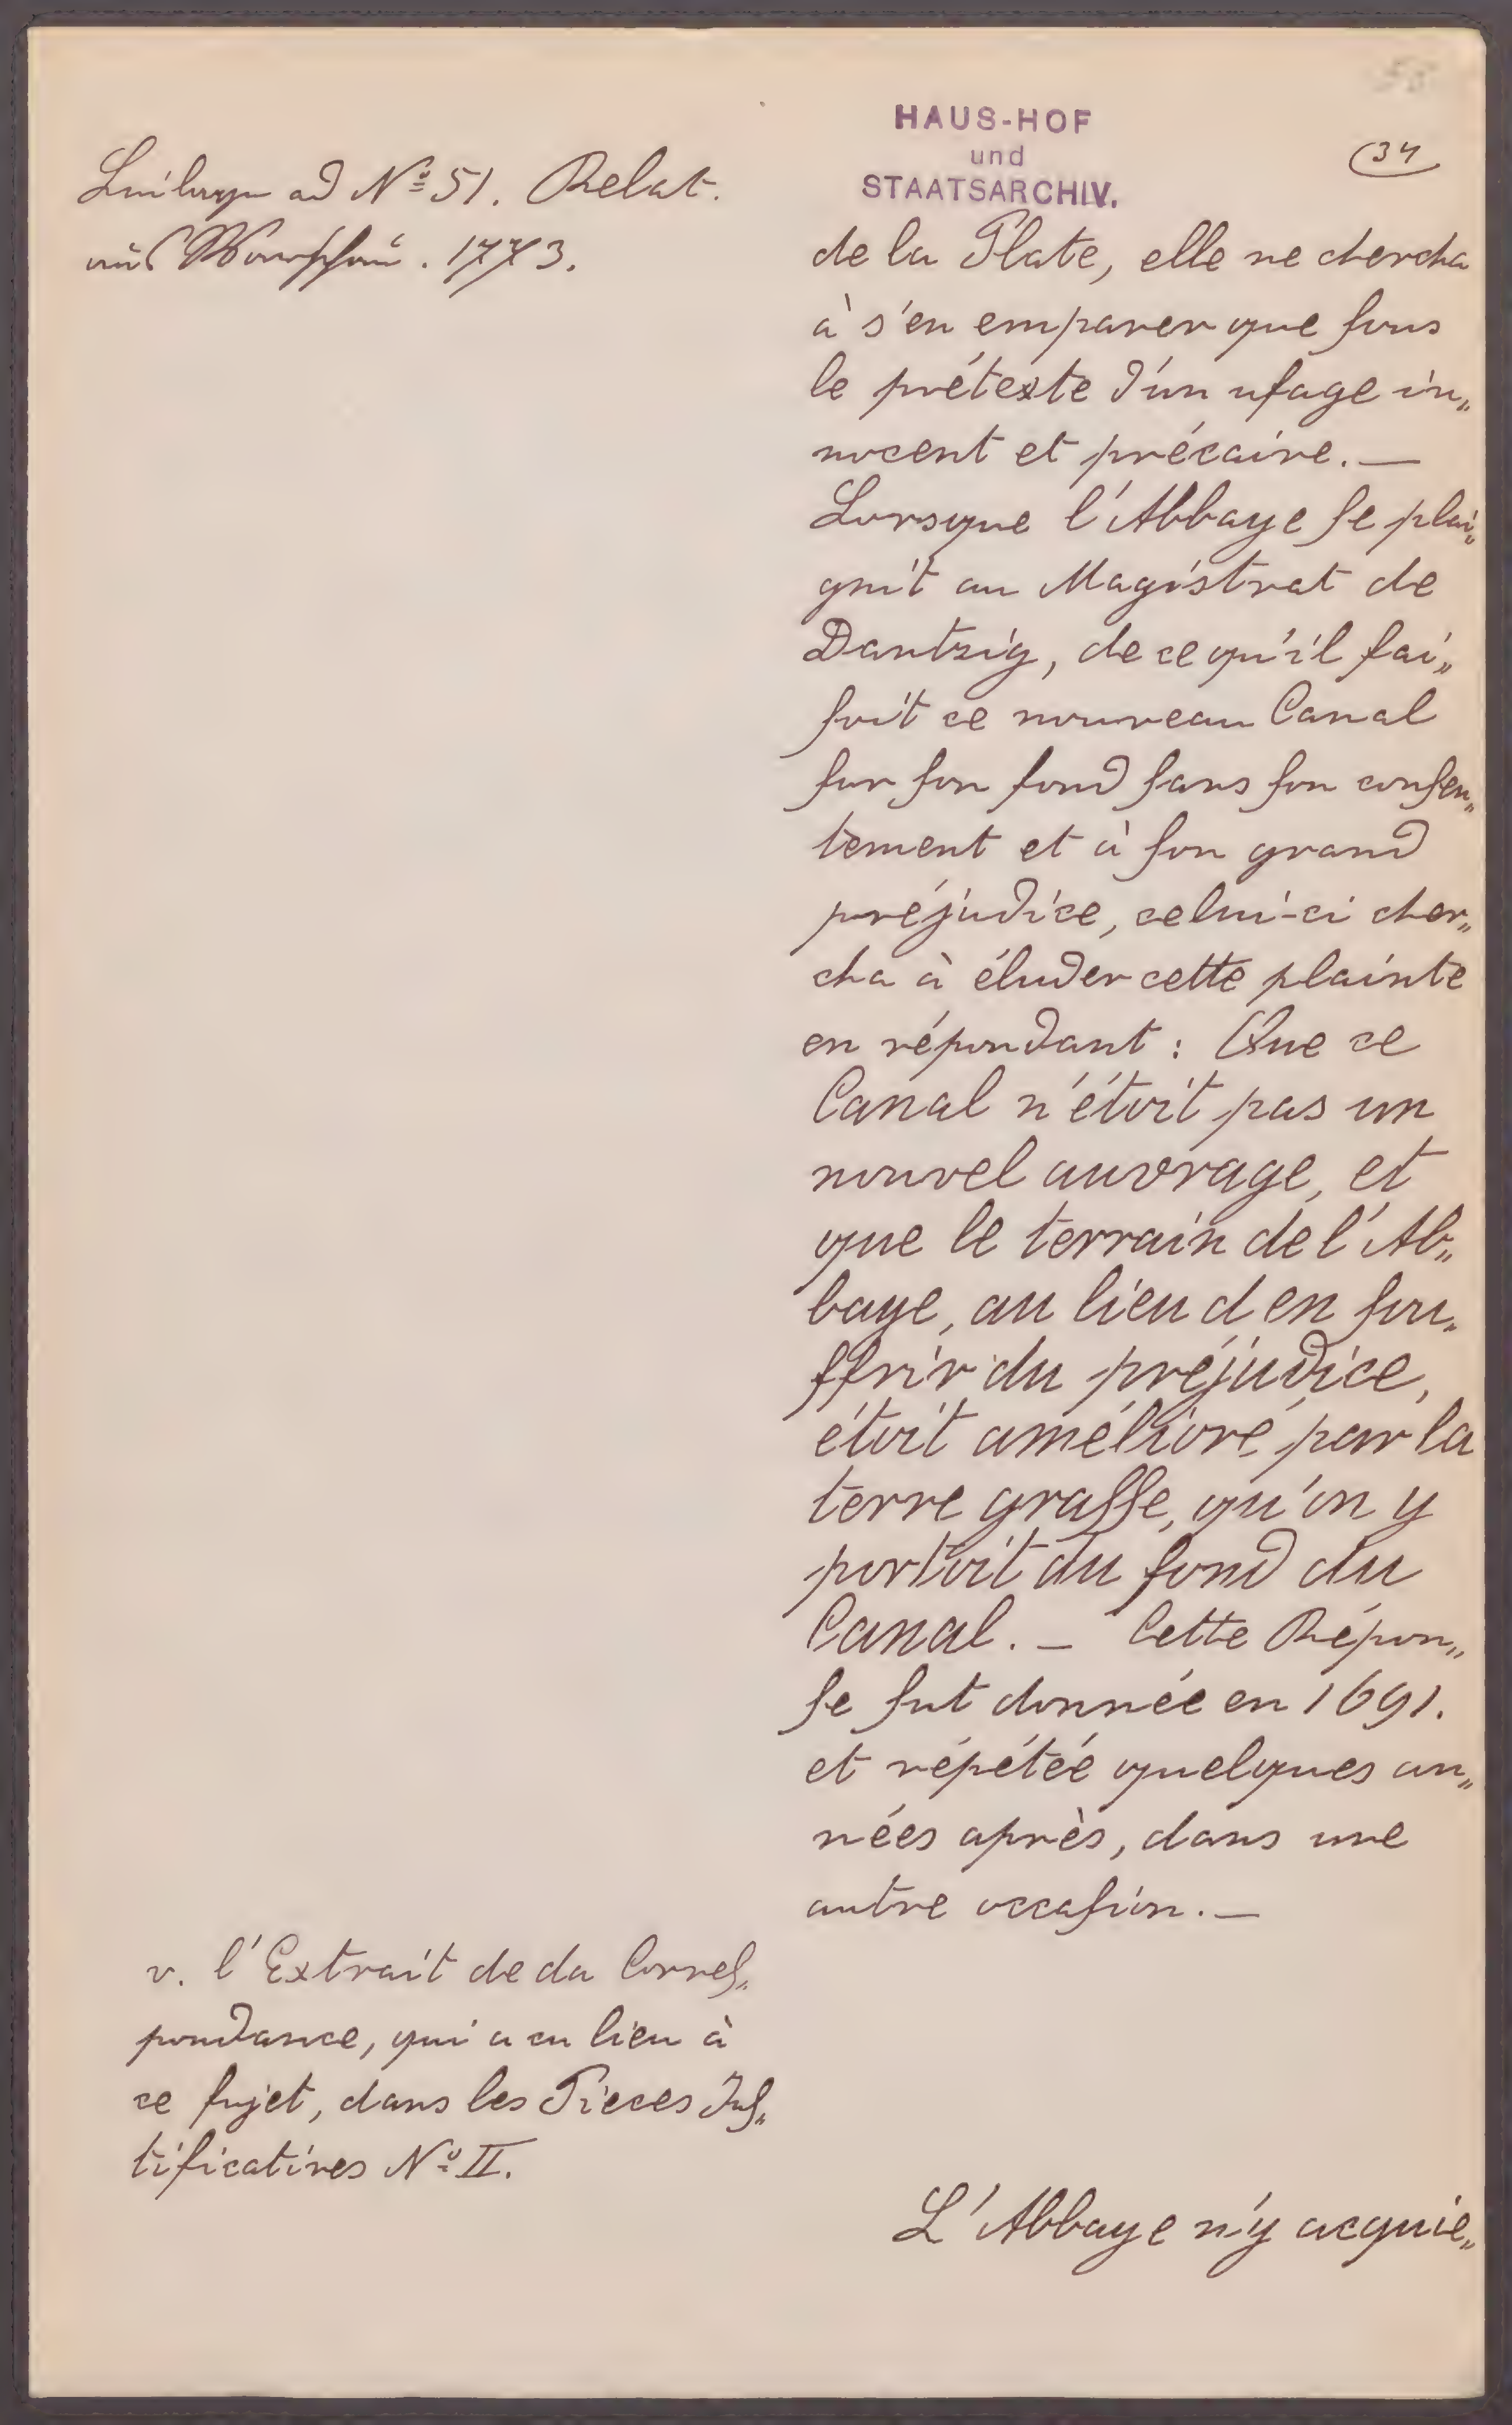 HAUS-HOF
und
STAATSARCHIV.
34
Beilage ad Nº 51. Relat.
aus Warschau. 1773.
de la Plate, elle ne chercha
à s'en emparer que sous
le prétexte d'un usage in„
nocent et précaire. —
Lorsque l'Abbaye se plai„
gnit au Magistrat de
Dantzig, de ce qu'il fai„
soit ce nouveau Canal
sur son fond sans son consen„
tement et à son grand
préjudice, celui-ci cher„
cha à éluder cette plainte
en répondant : Que ce
Canal n'étoit pas un
nouvel ouvrage, et
que le terrain de l'Ab„
baye, au lieu d en sou„
ffrir du préjudice,
étoit amélioré par la
terre grasse, qu'on y
portoit du fond du
Canal. — Cette Répon„
se fut donnée en 1691.
et répétée quelques an„
nées après, dans une
autre occasion. —
v. l'Extrait de da Corres„
pondance, qui a eu lieu à
ce sujet, dans les Pieces Jus„
tificatives Nº II.
L'Abbaye n'y acquie„